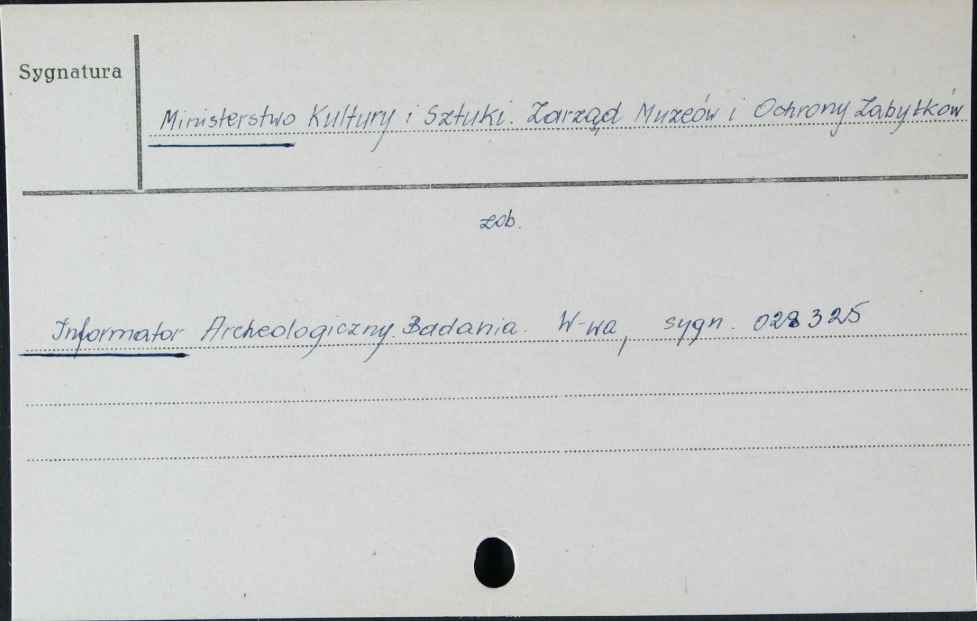 Sygnatura
Ministerstwo Kultury i Sztuki. Zarząd Muzeów i Ochrony Zabytków
zob.
Informator Archeologiczny. Badania. W-wa, sygn. 028325